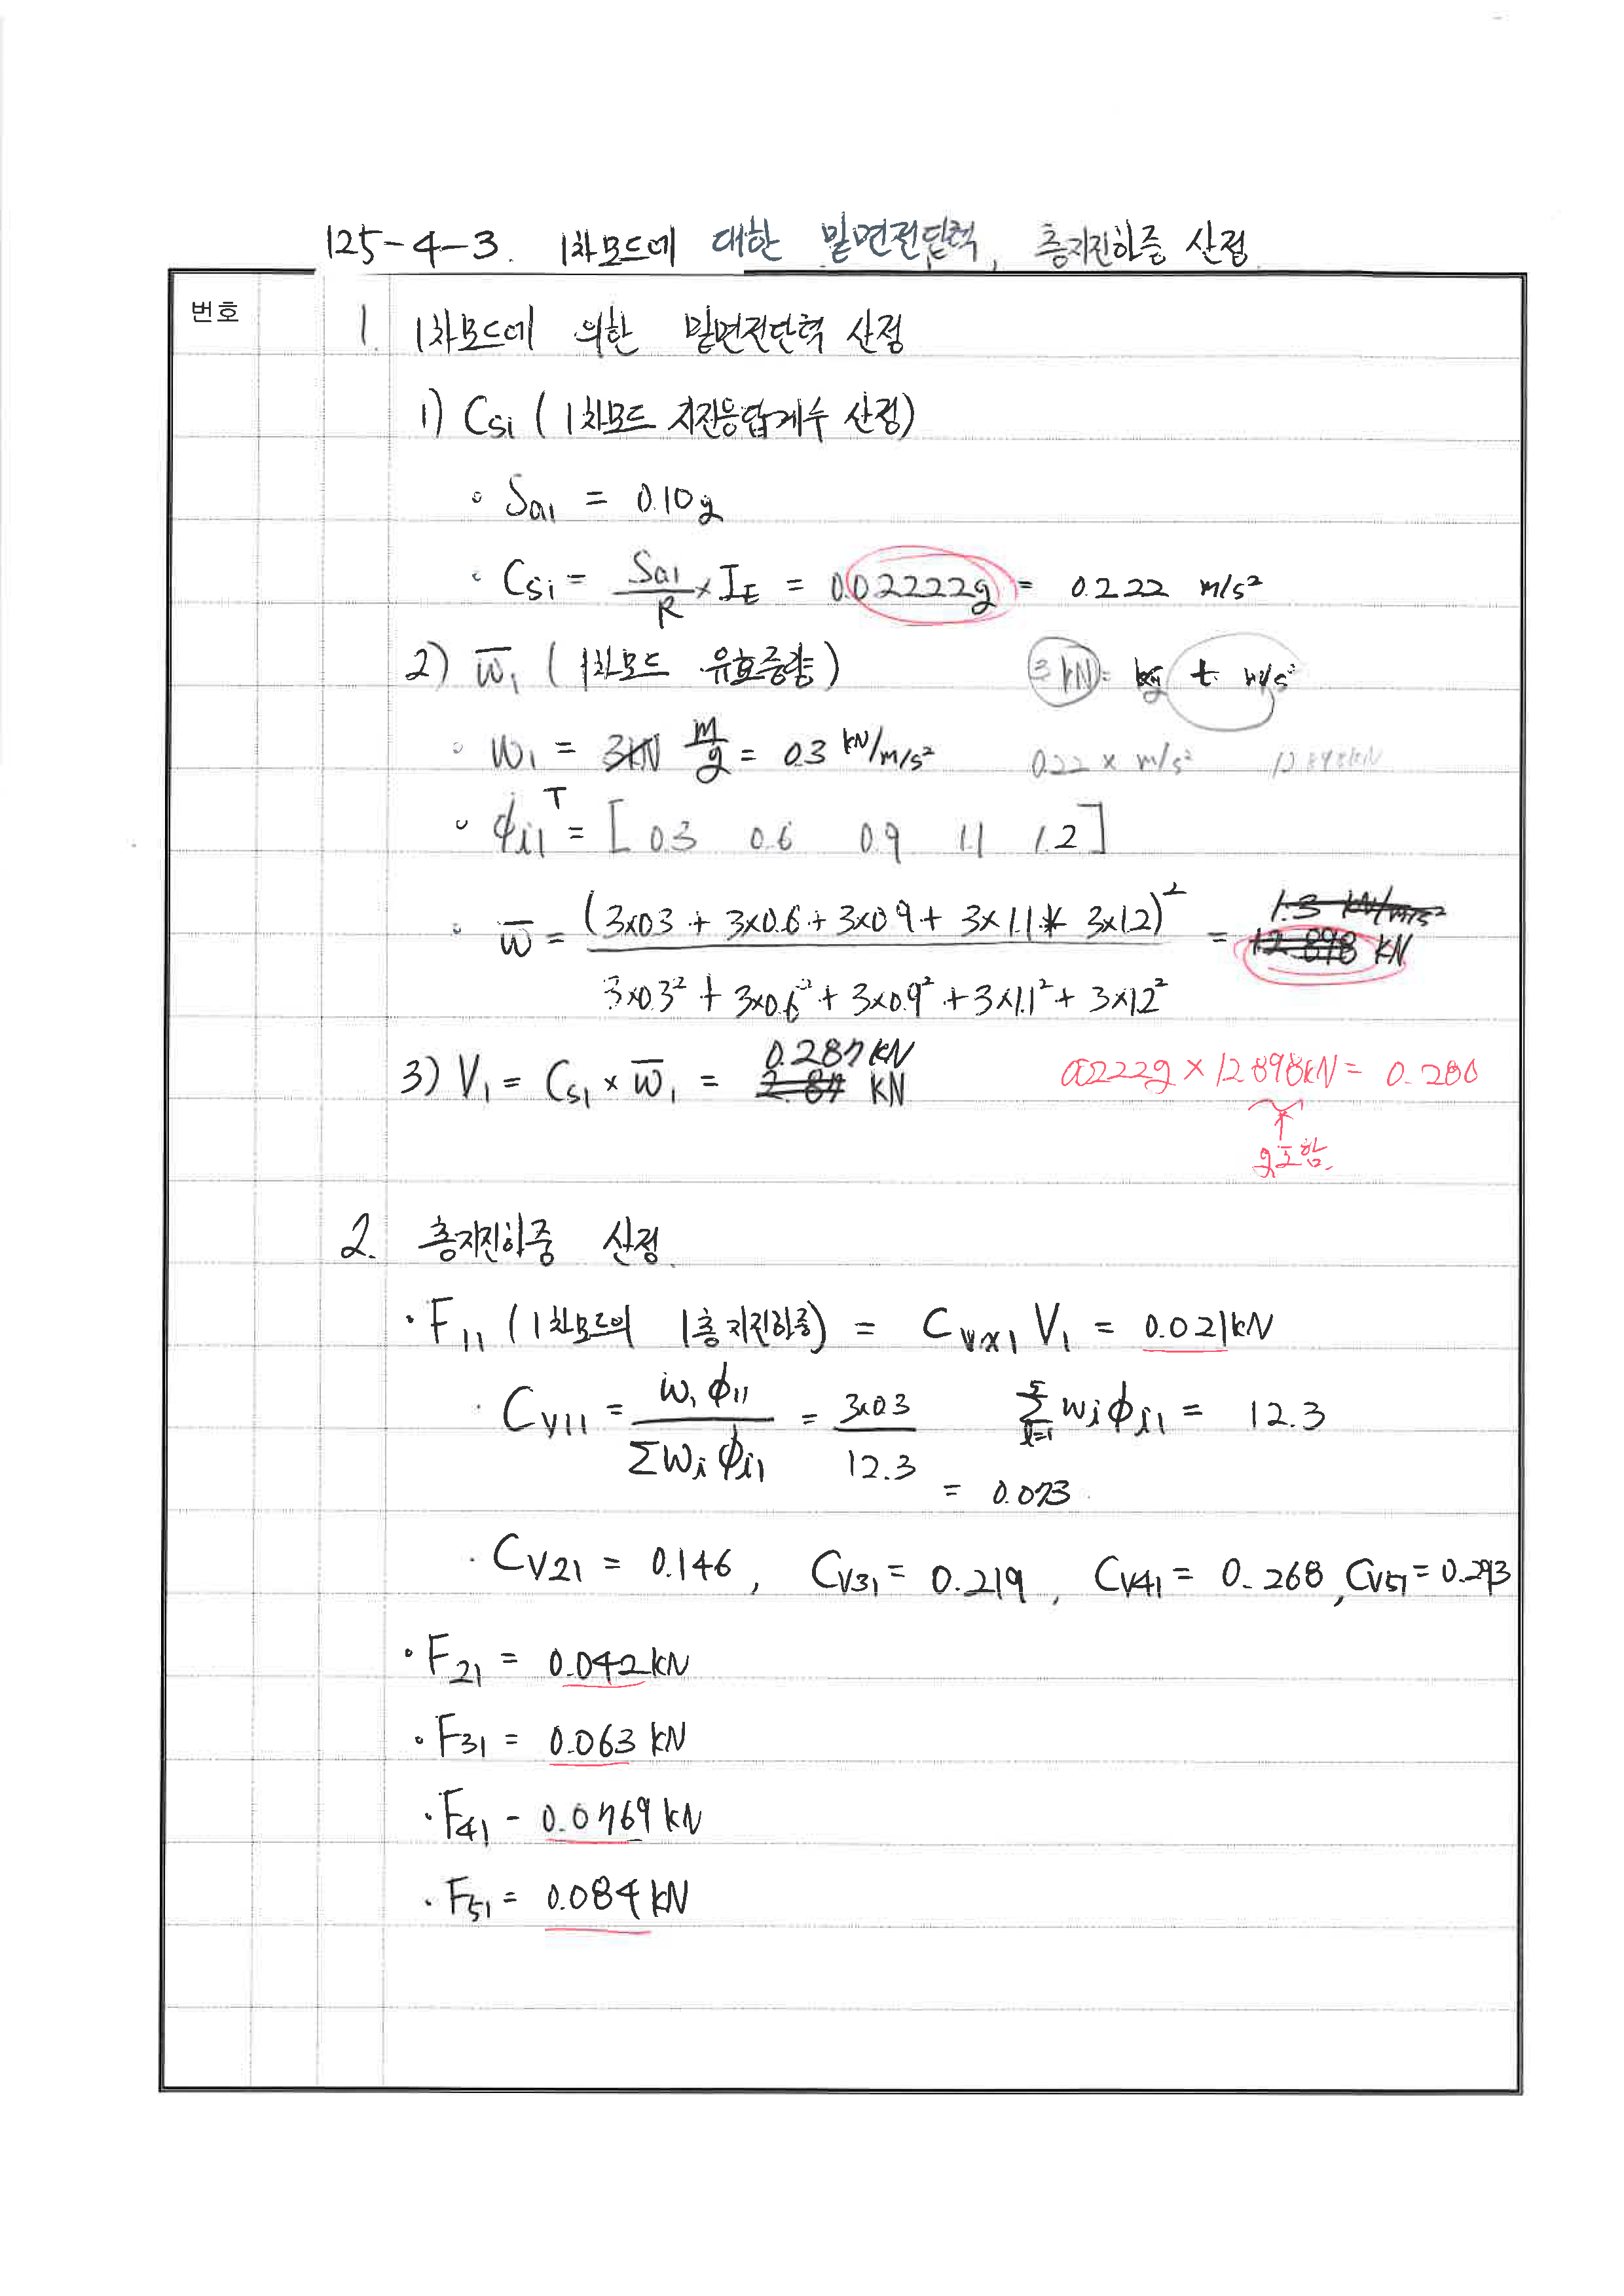 125-4-3. 1차모드에 대한 밑면전단력, 층지진하중 산정.
번호
1. 1차모드에 의한 밑면전단력 산정
1) Csi ( 1차모드 지진응답계수 산정)
∘ Sa1 = 0.10g
∘ Csi = Sa1/R × IE = 0.02222g = 0.222 m/s²
2) w̅1 ( 1차모드 유효중량 )
3 kN = kg t m/s²
∘ w1 = 3kN m/g = 0.3 kN/m/s²
0.22 × m/s² 12.898kN
∘ ϕi1ᵀ = [ 0.3 0.6 0.9 1.1 1.2 ]
∘ w̅ = (3×0.3 + 3×0.6 + 3×0.9 + 3×1.1 + 3×1.2)² / 3×0.3² + 3×0.6² + 3×0.9² + 3×1.1² + 3×1.2² = 12.898 kN
1.3 kN/m/s²
3) V1 = Cs1 × w̅1 = 2.87 kN
0.287 kN
0.0222g × 12.898kN = 0.280
g포함.
2. 층지진하중 산정.
· F11 ( 1차모드의 1층 지진하중) = Cvx1 V1 = 0.021kN
· Cv11 = w1 ϕ11 / Σwi ϕi1 = 3×0.3 / 12.3 = 0.073
5Σi=1 wi ϕi1 = 12.3
· Cv21 = 0.146, Cv31 = 0.219, Cv41 = 0.268, Cv51 = 0.293
· F21 = 0.042kN
· F31 = 0.063 kN
· F41 - 0.0769 kN
· F51 = 0.084 kN